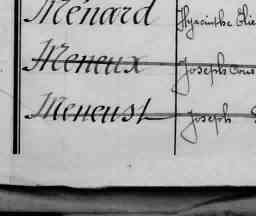 Ménard Hyacinthe
Meneux Joseph
Meneust Joseph